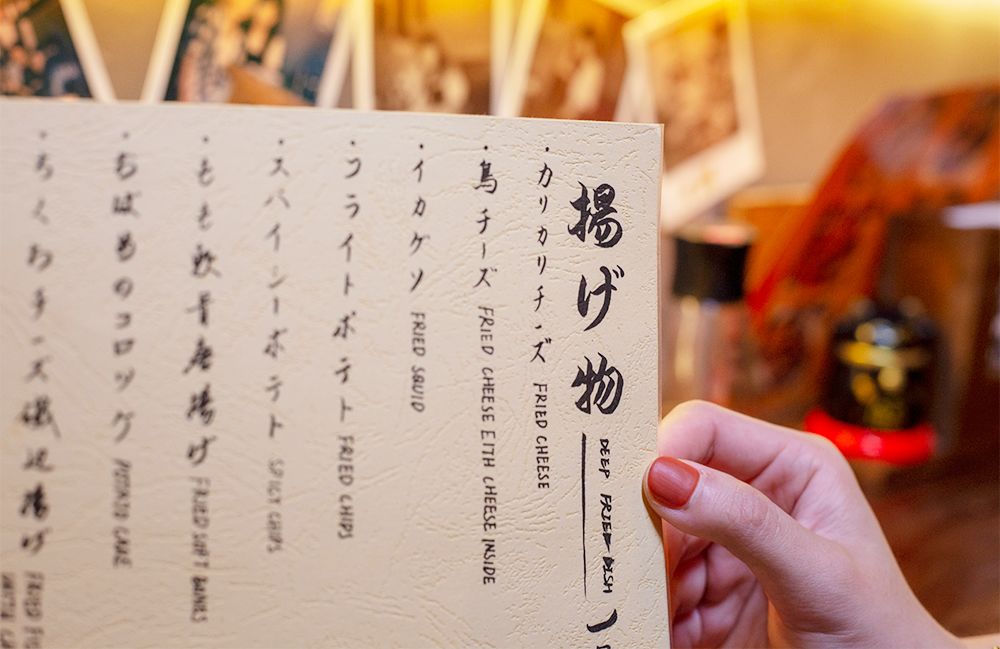 揚げ物 DEEP FRIED DISH
・カリカリチーズ FRIED CHEESE
・鳥チーズ FRIED CHEESE EITH CHEESE INSIDE
・イカゲソ FRIED SQUID
・フライトポテト FRIED CHIPS
・スパイシーポテト SPICY CHIPS
・もも軟骨唐揚げ FRIED SOFT BONES
・おばあのコロッケ POTATO CAKE
・ちくわチーズ磯辺揚げ FRIED